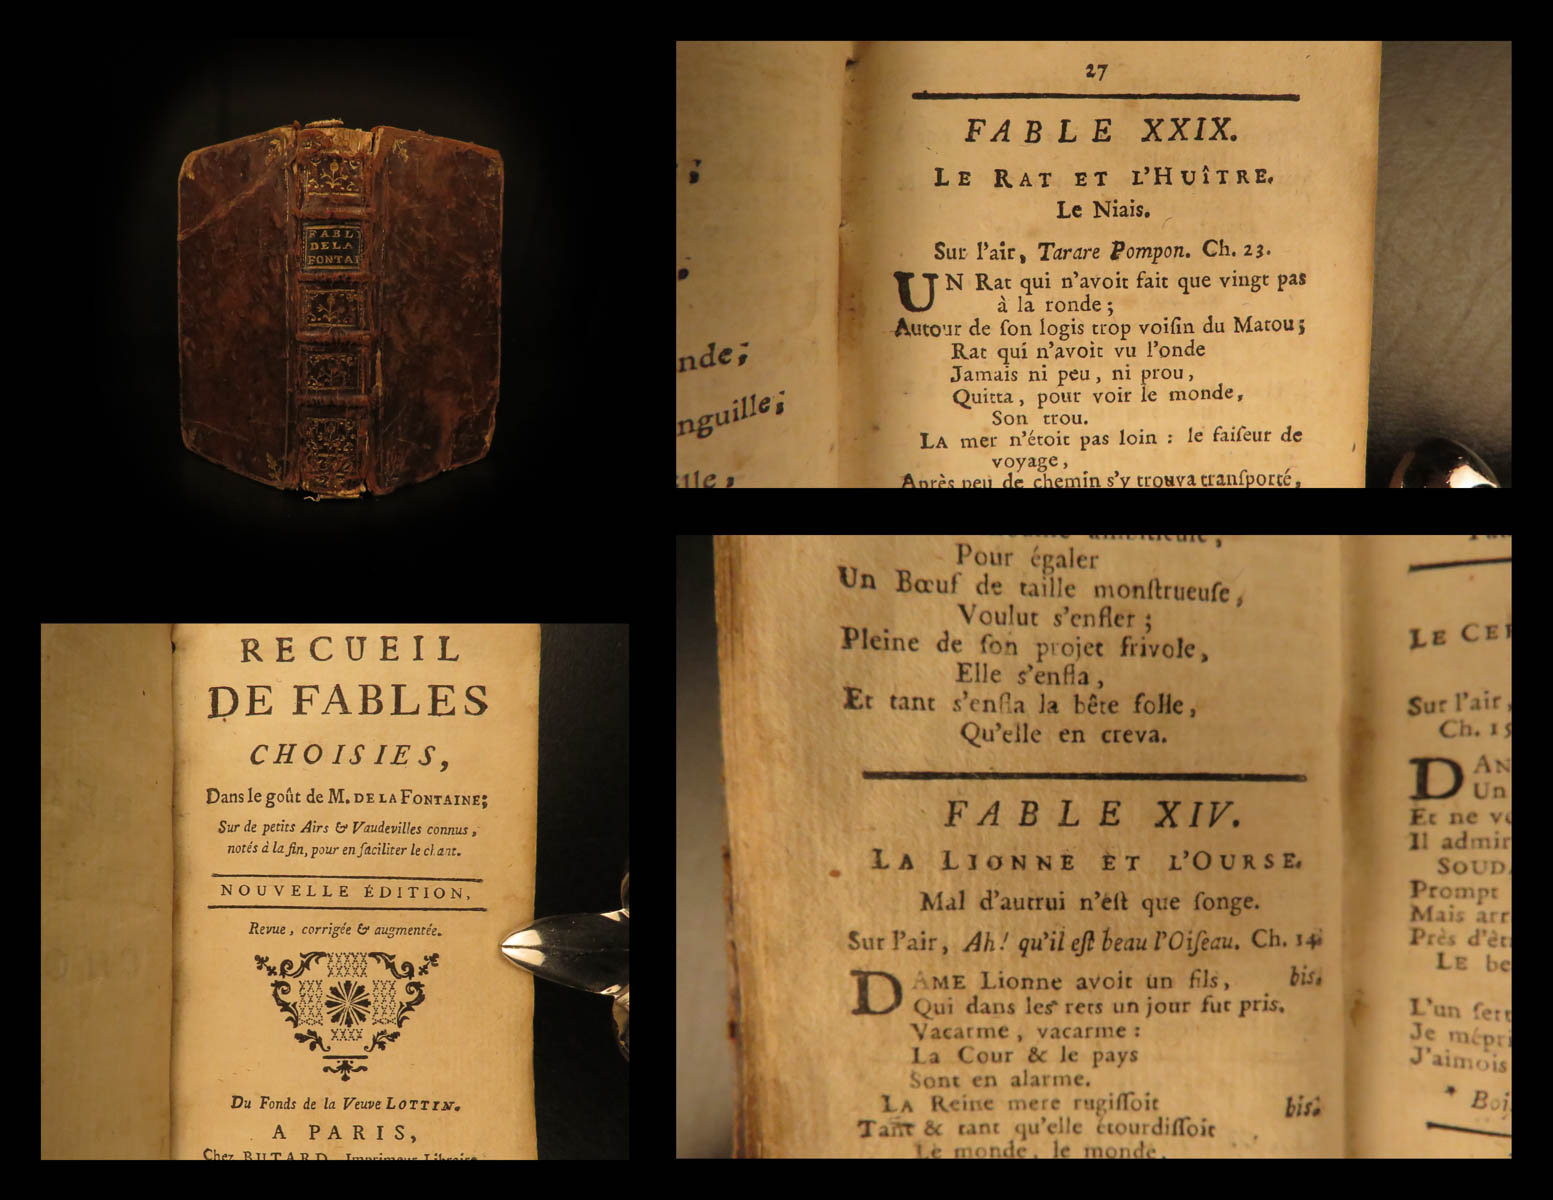 FABL
DE LA
FONTAI
RECUEIL
DE FABLES
CHOISIES,
Dans le goût de M. DE LA FONTAINE;
Sur de petits Airs & Vaudevilles connus,
notés à la fin, pour en faciliter le chant.
NOUVELLE ÉDITION,
Revue, corrigée & augmentée.
Du Fonds de la Veuve LOTTIN.
A PARIS,
Chez BUTARD, Imprimeur Libraire
27
FABLE XXIX.
LE RAT ET L'HUÎTRE.
Le Niais.
Sur l'air, Tarare Pompon. Ch. 23.
UN Rat qui n'avoit fait que vingt pas
à la ronde;
Autour de ſon logis trop voiſin du Matou;
Rat qui n'avoit vu l'onde
Jamais ni peu, ni prou,
Quitta, pour voir le monde,
Son trou.
LA mer n'étoit pas loin : le faiſeur de
voyage,
Après peu de chemin s'y trouva tranſporté,
;
nde;
nguille;
lle,
Pour égaler
Un Bœuf de taille monſtrueuſe,
Voulut s'enfler;
Pleine de ſon projet frivole,
Elle s'enfla,
Et tant s'enfla la bête folle,
Qu'elle en creva.
FABLE XIV.
LA LIONNE ET L'OURSE.
Mal d'autrui n'eſt que ſonge.
Sur l'air, Ah! qu'il eſt beau l'Oiſeau. Ch. 14.
DAME Lionne avoit un fils, bis.
Qui dans les rets un jour fut pris.
Vacarme, vacarme :
La Cour & le pays
Sont en alarme.
LA Reine mere rugiſſoit bis.
Tant & tant qu'elle étourdiſſoit
Le monde, le monde,
LE CER
Sur l'air,
Ch. 15
DAN
Un
Et ne vo
Il admir
SOUDA
Prompt
Mais arr
Près d'êt
LE be
L'un ſert
Je mépri
J'aimois
* Boi